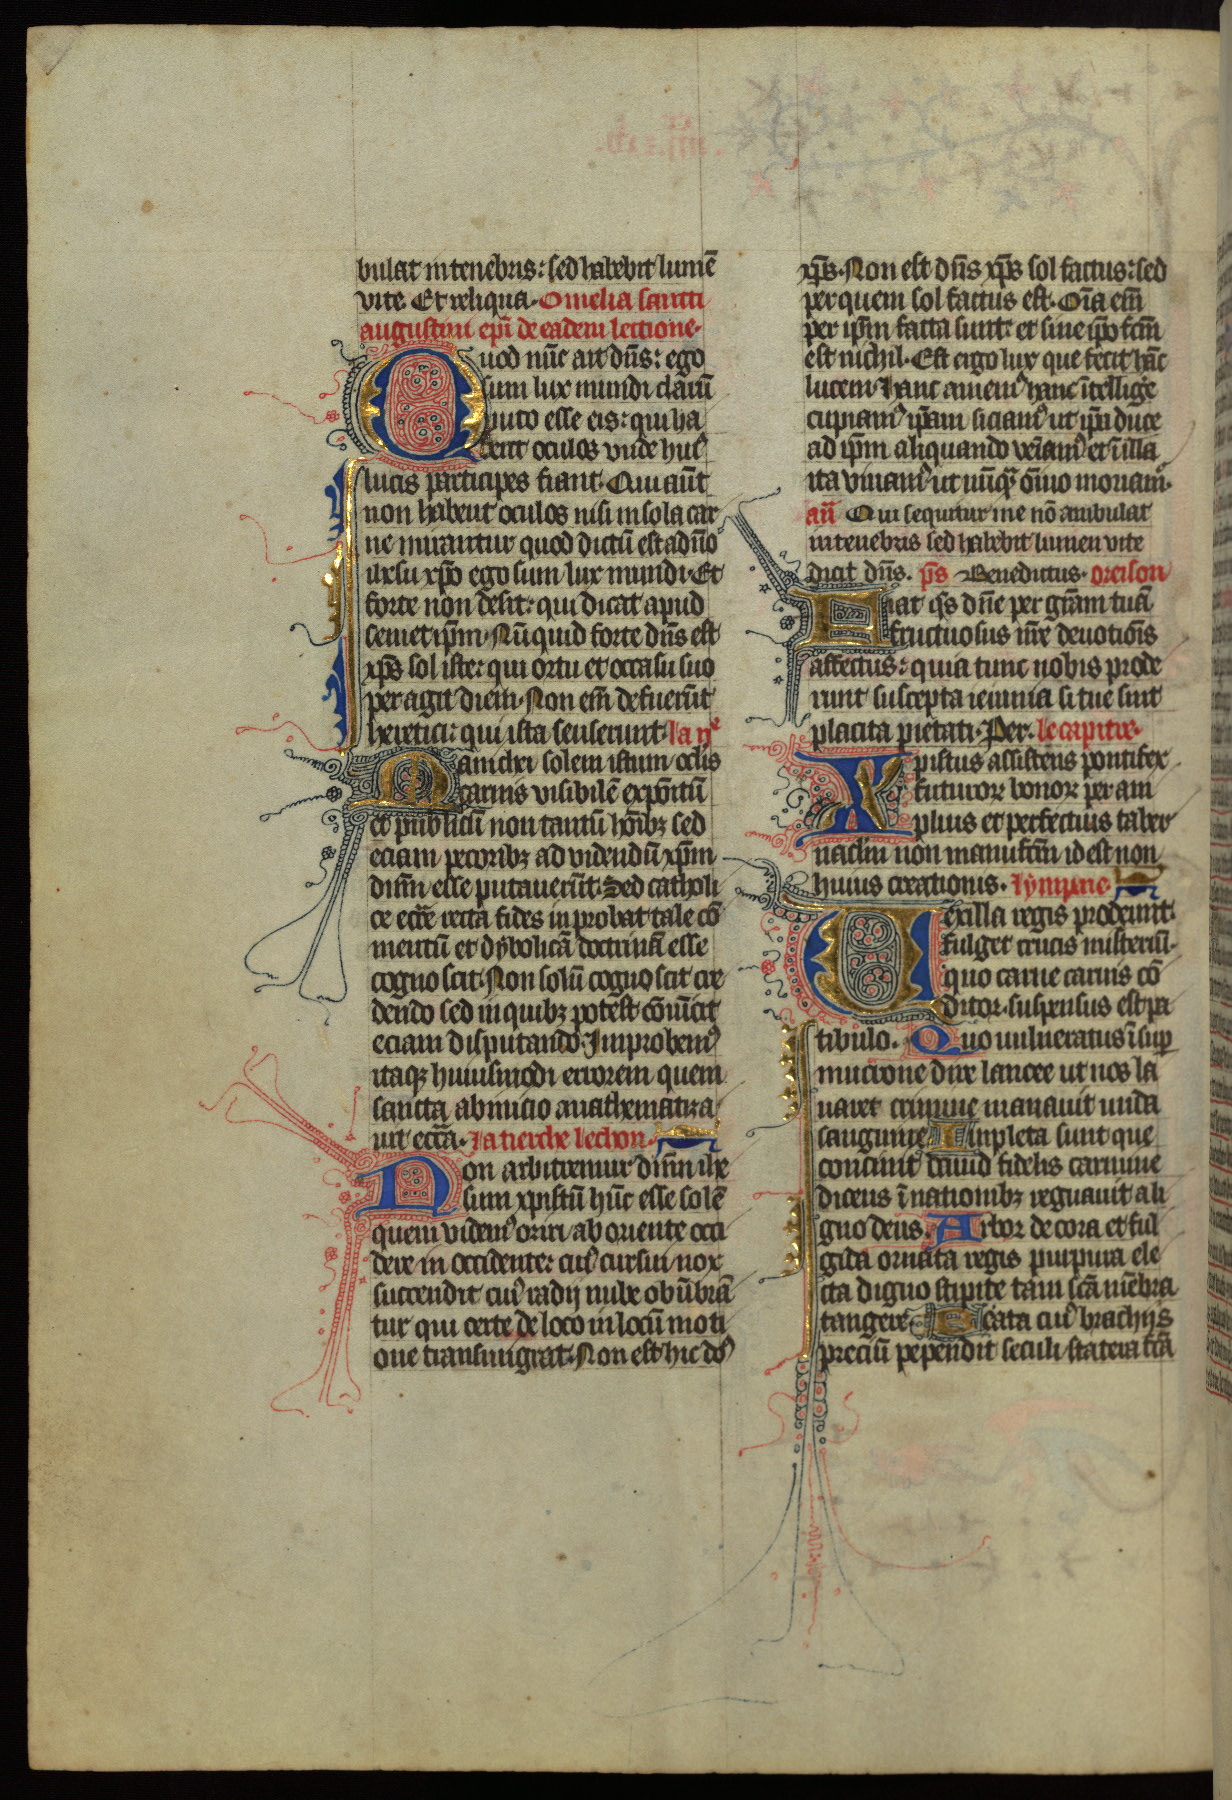 bulat in tenebris: sed habebit lumē
vite. Et reliqua. Omelia sancti
augustini ep̄i de eadem lectione.
Quod nūc ait dn̄s: ego
sum lux mundi clarū
puto esse eis: qui ha
bent oculos vnde huiꝰ
lucis participes fiant. Qui aūt
non habent oculos nisi in sola car
ne mirantur quod dictū est a dn̄o
ih̄esu xp̄o ego sum lux mundi. Et
forte non desit: qui dicat apud
semetip̄m. Nū quid forte dn̄s est
xp̄s sol iste: qui ortu et occasu suo
peragit diem. Non em̄ defuerūt
heretici: qui ista senserunt. la ij͛
Manichei solem istum oc̄lis
carnis visibilē expōitū
et publicū non tantū hōībꝫ sed
eciam pecoribꝫ ad videndū xp̄m
dn̄m esse putauerūt. Sed catholi
ce ecc̄e recta fides inprobat tale cō
mentū et dyabolicā doctrinā esse
cognoscit. Non solū cognoscit cre
dendo sed in quibꝫ potest cōuīcit
eciam disputando. Improbemꝰ
itaqꝫ huiusmodi errorem quem
sancta ab inicio anathematiza
uit ecc̄a. la tierche lechon.
Non arbitremur dn̄m ihe
sum xpistū hūc esse solē
quem videmꝰ oriri ab oriente occi
dere in occidente: cuiꝰ cursui nox
succendit cuiꝰ radij nube obūbrā
tur qui certe de loco in locū moti
one transmigrat. Non est hic dn̄s
xp̄s. Non est dn̄s xp̄s sol factus: sed
per quem sol factus est. Oīa em̄
per ip̄m facta sunt: et sine ip̄o fc̄m
est nichil. Est ergo lux que fecit hāc
lucem. hanc amemꝰ hanc ītellige
cupiamꝰ ip̄am siciamꝰ ut ip̄a duce
ad ip̄m aliquando veīamꝰ et ī illa
ita viuamꝰ ut nūqꝫ oīno moriamꝰ.
an̄ Qui sequitur me nō ambulat
in tenebris sed habebit lumen vite
dicit dn̄s. p̄s Benedictus. oreison
Fiat q̄s dn̄e per gr̄am tuā
fructuosus nr̄e deuotiōis
affectus: quia tunc nobis prode
runt suscepta ieiunia si tue sint
placita pietati. Per. le capitre.
Xpistus assistens pontifex
futuroꝝ bonoꝝ per am
plius et perfectius taber
nac̄lm non manufc̄m id est non
huius creationis. lympne
Vexilla regis prodeunt:
fulget crucis misteriū.
quo carne carnis cō
ditor. suspensus est pa
tibulo. Quo uulneratus īsup̱
mucrone dire lancee ut nos la
uaret crimine manauit unda
sanguine. Inpleta sunt que
concinit dauid fidelis carmine
dicens ī nationibꝫ regnauit a li
gno deus. Arbor decora et ful
gida ornata regis purpura ele
cta digno stipite tam sc̄a mēbra
tangere. Beata cuiꝰ brachijs
preciū pependit seculi statera fc̄ā